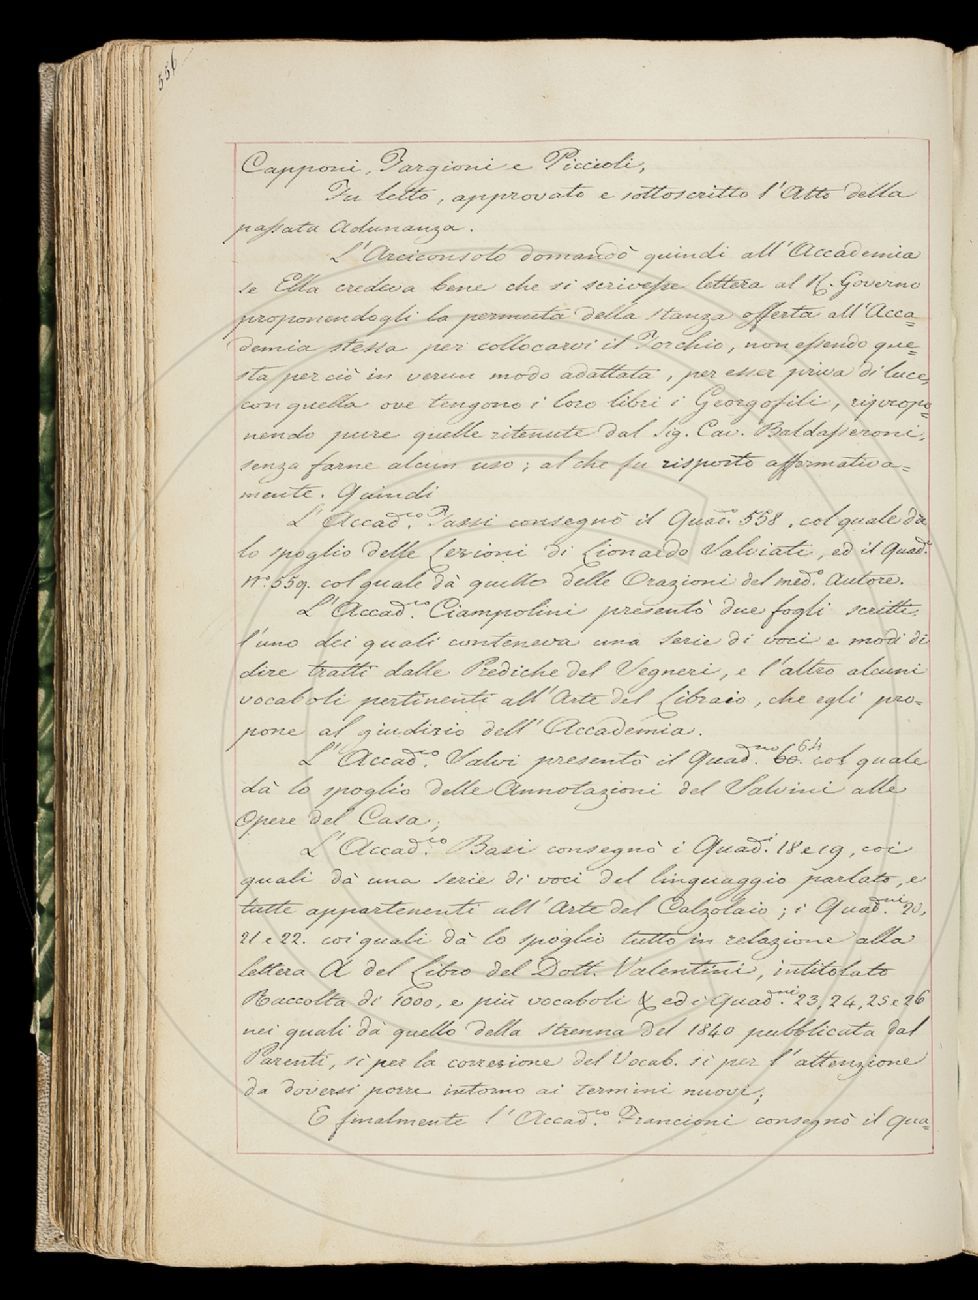 556
Capponi, Targioni e Piccioli,
Fu letto, approvato e sottoscritto l'Atto della
passata Adunanza.
L'Arciconsolo domandò quindi all'Accademia
se Ella credeva bene che si scrivesse lettera al R. Governo
proponendogli la permuta della stanza offerta all'Acca=
demia stessa per collocarvi il Torchio, non essendo que=
sta perciò in verun modo adattata, per esser priva di luce,
con quella ove tengono i loro libri i Georgofili, ripropo=
nendo pure quelle ritenute dal Sig. Cav. Baldasseroni,
senza farne alcun uso; al che fu risposto affermativa=
mente. Quindi
L'Accad.co Tassi consegnò il Quad.o 558. col quale dà
lo spoglio delle Lezioni di Lionardo Salviati, ed il Quad.o
N.o 559. col quale dà quello delle Orazioni del med.o Autore.
L'Accad.co Ciampolini presentò due fogli scritti,
l'uno dei quali conteneva una serie di voci e modi di
dire tratti dalle Prediche del Segneri, e l'altro alcuni
vocaboli pertinenti all'Arte del Libraio, che egli pro=
pone al giudizio dell'Accademia.
L'Accad.co Salvi presentò il Quad.no 60. 64 col quale
dà lo spoglio delle Annotazioni del Salvini alle
Opere del Casa;
L'Accad.co Basi consegnò i Quad.i 18 e 19, coi
quali dà una serie di voci del linguaggio parlato, e
tutte appartenenti all'Arte del Calzolaio; i Quad.ni 20,
21 e 22. coi quali dà lo spoglio tutto in relazione alla
lettera A del Libro del Dott. Valentini, intitolato
Raccolta di 1000, e più vocaboli & ed i Quad.ni 23, 24, 25 e 26
nei quali dà quello della strenna del 1840 pubblicata dal
Parenti, sì per la correzione del Vocab. sì per l'attenzione
da doversi porre intorno ai termini nuovi;
E finalmente l'Accad.co Francioni consegnò il Qua=